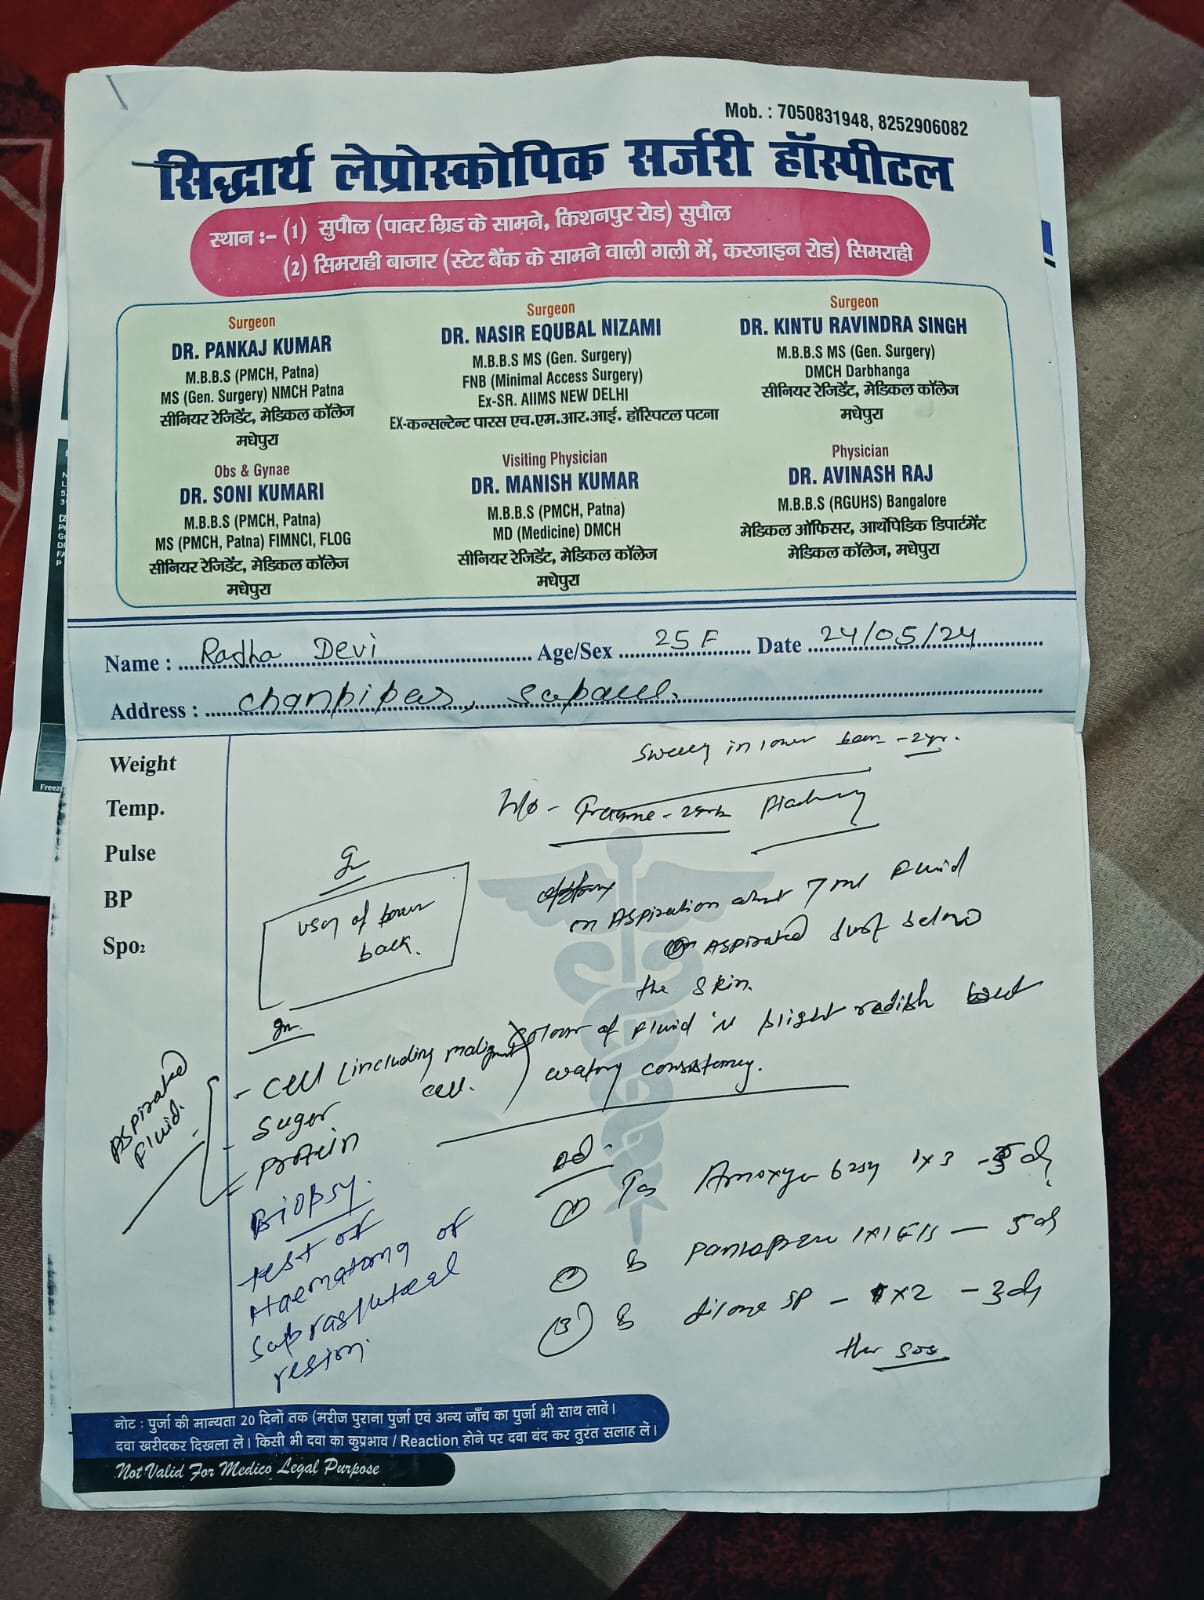 Mob. : 7050831948, 8252906082
सिद्धार्थ लेप्रोस्कोपिक सर्जरी हॉस्पीटल
स्थान :- (1) सुपौल (पावर ग्रिड के सामने, किशनपुर रोड) सुपौल
(2) सिमराही बाजार (स्टेट बैंक के सामने वाली गली में, करजाइन रोड) सिमराही
Surgeon
DR. PANKAJ KUMAR
M.B.B.S (PMCH, Patna)
MS (Gen. Surgery) NMCH Patna
सीनियर रेजिडेंट, मेडिकल कॉलेज
मधेपुरा
Surgeon
DR. NASIR EQUBAL NIZAMI
M.B.B.S MS (Gen. Surgery)
FNB (Minimal Access Surgery)
Ex-SR. AIIMS NEW DELHI
EX-कन्सल्टेन्ट पारस एच.एम.आर.आई. हॉस्पिटल पटना
Surgeon
DR. KINTU RAVINDRA SINGH
M.B.B.S MS (Gen. Surgery)
DMCH Darbhanga
सीनियर रेजिडेंट, मेडिकल कॉलेज
मधेपुरा
Obs & Gynae
DR. SONI KUMARI
M.B.B.S (PMCH, Patna)
MS (PMCH, Patna) FIMNCI, FLOG
सीनियर रेजिडेंट, मेडिकल कॉलेज
मधेपुरा
Visiting Physician
DR. MANISH KUMAR
M.B.B.S (PMCH, Patna)
MD (Medicine) DMCH
सीनियर रेजिडेंट, मेडिकल कॉलेज
मधेपुरा
Physician
DR. AVINASH RAJ
M.B.B.S (RGUHS) Bangalore
मेडिकल ऑफिसर, आर्थोपेडिक डिपार्टमेंट
मेडिकल कॉलेज, मधेपुरा
Name : Radha Devi Age/Sex 25 F Date 24/05/24
Address :
Weight
Temp.
Pulse
BP
Spo2
in lower - 2yr.
H/o -
USG of lower
back.
on Aspiration about 7 ml fluid
aspirated just below
the skin.
colour of fluid is slight radish
watery consistency.
Aspirated
fluid.
- cell (including malignant
cell.)
- suger
- protein
Biopsy.
test of
of
region.
Ad -
(1) 625 1x3
(2) - 5 d
(3) SP - 1x2 - 3 d
sos
नोट : पुर्जा की मान्यता 20 दिनों तक (मरीज पुराना पुर्जा एवं अन्य जाँच का पुर्जा भी साथ लावें।
दवा खरीदकर दिखला लें। किसी भी दवा का कुप्रभाव / Reaction होने पर दवा बंद कर तुरंत सलाह लें।
Not Valid For Medico Legal Purpose